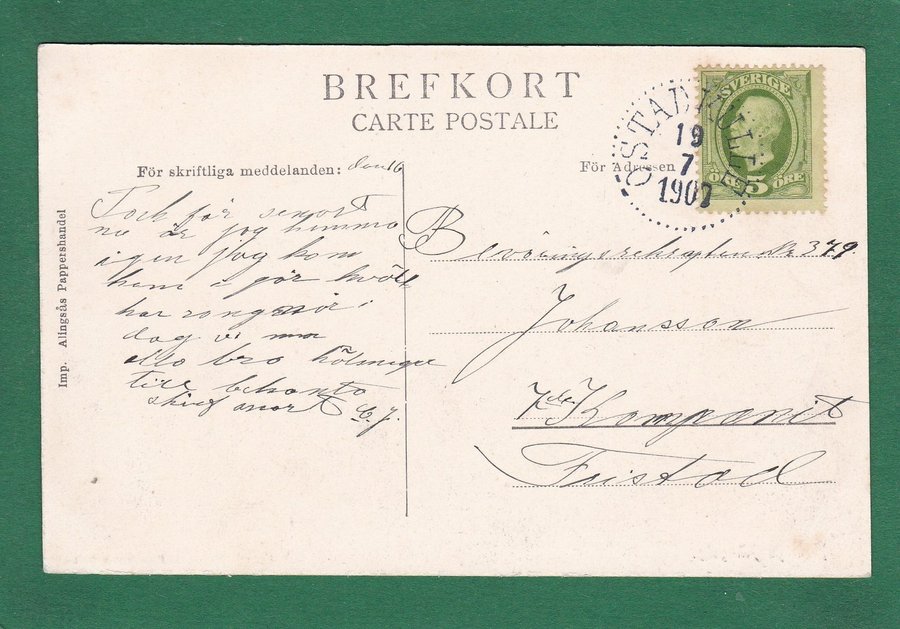 BREFKORT
CARTE POSTALE
För skriftliga meddelanden: den 16
Tack för senast
nu är jag hemma
igen jag kom
hem i går kväll
har
dag vi
alla bra hälsningar
till bekanta
skrif snart C. J.
Imp. Alingsås Pappershandel
För Adressen
SVERIGE
5 ÖRE
ÖSTADKULLE
19
7
1907
Beväringsrekryten No 379.
Johansson
7de Kompanit
Fristad